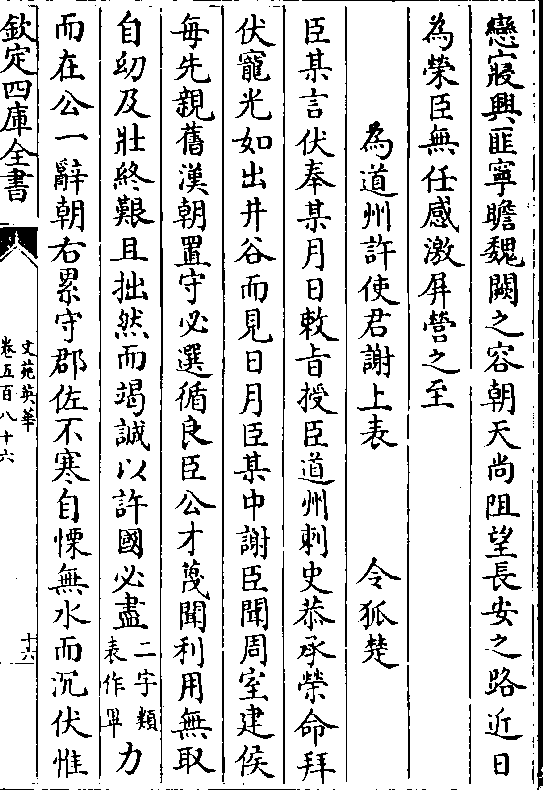 戀寢興匪寧瞻魏闕之容朝天尚阻望長安之路近日
為榮臣無任感激屏營之至
為道州許使君謝上表 令狐楚
臣某言伏奉某月日敕旨授臣道州刺史恭承榮命拜
伏寵光如出井谷而見日月臣某中謝臣聞周室建侯
每先親舊漢朝置守必選循良臣公才蔑聞利用無取
自幼及壯終艱且拙然而竭誠以許國必盡二字類表作單力
而在公一辭朝右累守郡佐不寒自慄無水而沉伏惟
欽定四庫全書
文苑英華
卷五百八十六
十六